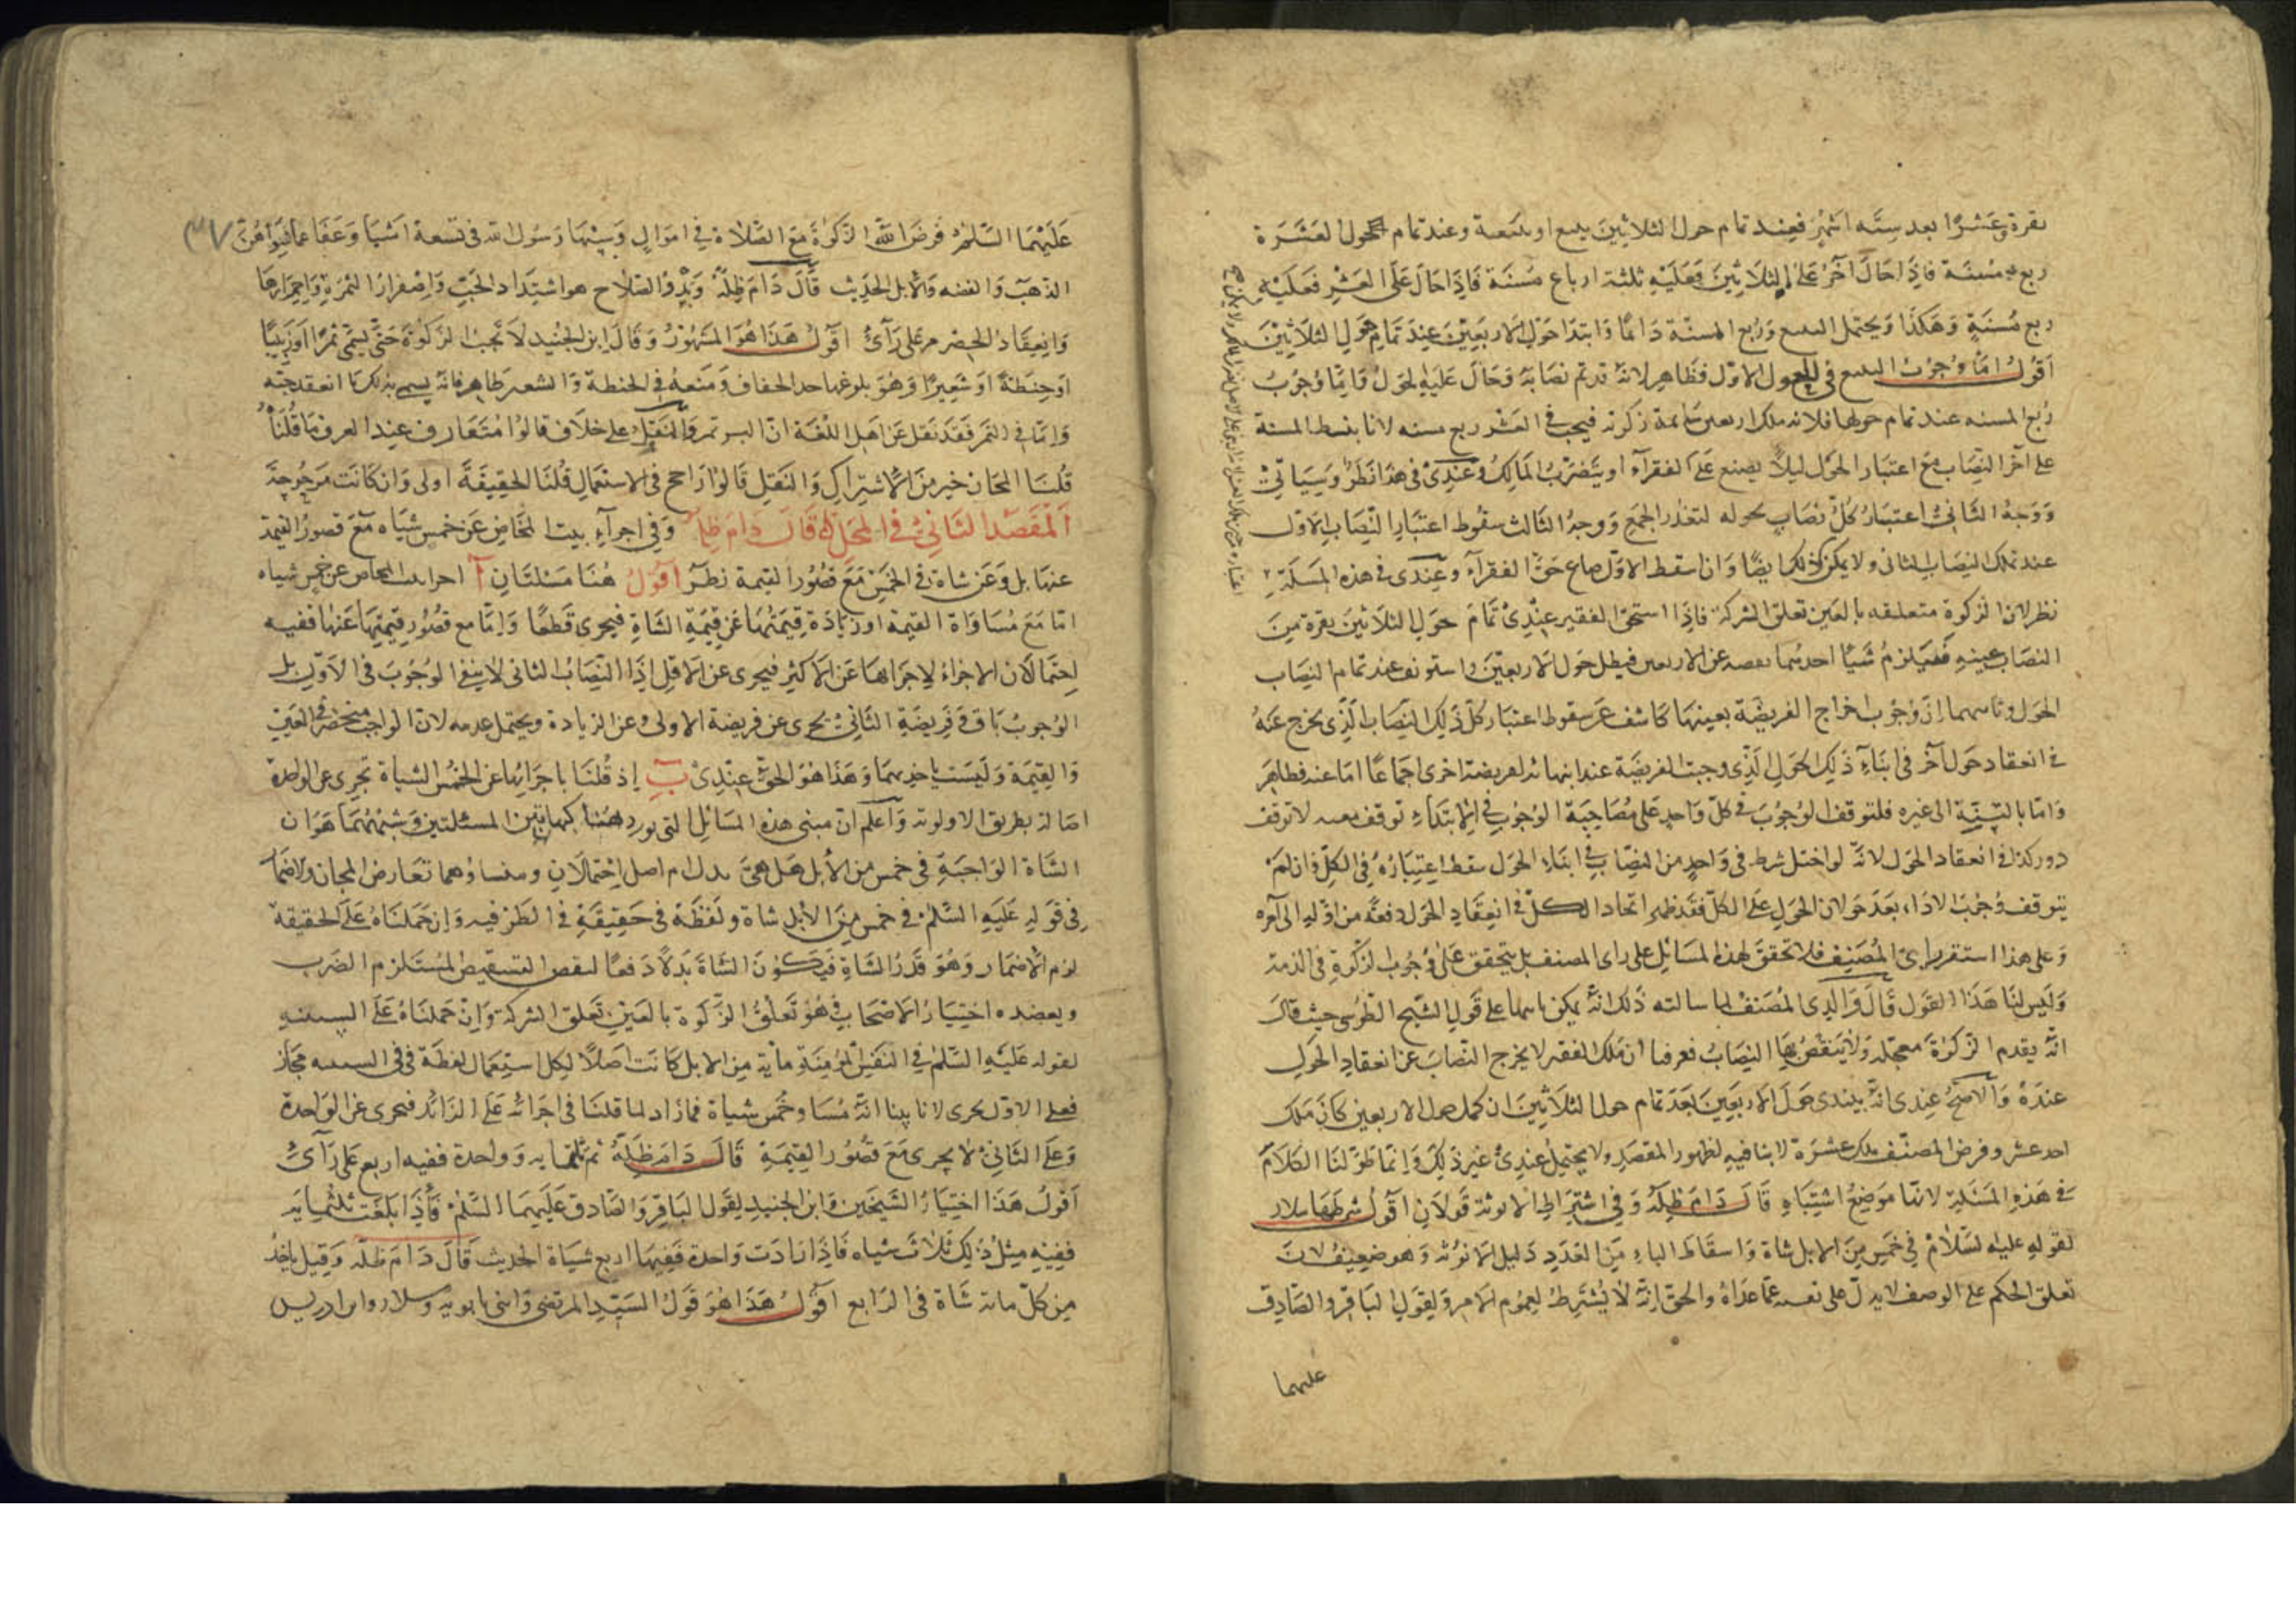 بقرة وعشرا بعد ستة اشهر فعند تمام حول الثلاثين تبيع او تبيعة وعند تمام حول العشرة
ربع مسنة فاذا حال آخر على الثلاثين فعليه ثلثة ارباع مسنة فاذا حال على العشر فعليه
ربع مسنة وهكذا ويحتمل التبيع وربع المسنة دائما وابتداء حول الاربعين عند تمام حول الثلاثين
اقول اما وجوب التبيع في الحول الاول فظاهر لانه قد تم نصابه وحال عليه الحول واما وجوب
ربع المسنه عند تمام حولها فلانه ملك اربعين سائمة زكوته فيجب في العشر ربع مسنه لانا بقسط المسنة
على آخر النصاب مع اعتبار الحول ليلا يضيع على الفقرآء او يتضرب المالك وعندى في هذا نظر وسيأتي
ووجه الثاني اعتبار كل نصاب بحوله لتعذر الجمع ووجه الثالث سقوط اعتبار النصاب الاول
عند تملك النصاب الثانى ولا يمكن ذلك ايضا وان اسقط الاول ضاع حق الفقرآء وعندى في هذه المسئلة
نظر لان الزكوة متعلقه بالعين تعلق الشركة فاذا استحق الفقير عندى تمام حول الثلاثين بقرة من
النصاب بعينه فيلزم شيئا احدهما نقصه عن الاربعين فيبطل حول الاربعين واستونف عند تمام النصاب
الحول وثانيهما ان وجوب اخراج الفريضة بعينها كاشف عن سقوط اعتبار كل ذلك النصاب الذى يخرج عنه
في انعقاد حول آخر في اثناء ذلك الحول الذى وجبت الفريضة عند انتهائه لفريضة اخرى اجماعا اما عند فظاهر
واما بالنسبة الى غيره فلتوقف الوجوب في كل واحد على مصاحبة الوجوب في الابتداء توقف معيه لا توقف
دور كذا في انعقاد الحول لانه لو اختل شرط في واحد من النصاب في اثناء الحول سقط اعتباره في الكل فان لم
يتوقف وجوب الاداء بعد حولان الحول على الكل فقد ظهر اتحاد الكل في انعقاد الحول دفعة من اوله الى آخره
وعلى هذا استقر راى المصنف فلا تحقق لهذه المسائل على راى المصنف بل يتحقق على وجوب الزكوة في الذمة
وليس لنا هذا القول قال والدى المصنف لما سالته ذلك انه يمكن على قول الشيخ الطوسى حيث قال
انه يقدم الزكوة معجله ولا ينقص بها النصاب فعرفنا ان ملك الفقير لا يخرج النصاب عن انعقاد الحول
عنده والاصح عندى انه يبتدى حول الاربعين بعد تمام حول الثلاثين ان كمل حول الاربعين كان ملك
احد عشر وفرض المصنف ملك عشرة لا ينافيه لظهور المقصد ولا يحتمل عندى غير ذلك وانما طولنا الكلام
في هذه المسئلة لانها موضع اشتباه قال دام ظله وفي اشتراط الانوثة قولان اقول شرطها سلار
لقوله عليه السلام في خمس من الابل شاة واسقاط الهاء من العدد دليل الانوثة وهو ضعيف لان
تعلق الحكم على الوصف لا يدل على نفيه عما عداه والحق انه لا يشترط لعموم الامر ولقول الباقر والصادق
عليهما
عليهما السلم فرض الله الزكوة مع الصلاة في اموال وسنها رسول الله في تسعة اشيا وعفا عما سواهن
٣٧
الذهب والفضه والابل الحديث قال دام ظله وبدو الصلاح هو اشتداد الحب واصفرار الثمرة واحمرارها
وانعقاد الحصرم على رأى اقول هذا هو المشهور وقال ابن الجنيد لا تجب الزكوة حتى يسمى تمرا او زبيبا
او حنطة او شعيرا وهو بلوغها حد الجفاف ومنعه في الحنطة والشعير ظاهر فانه يسمى بذلك لما انعقد حبه
واما في التمر فقد نقل عن اهل اللغة ان البسر تمر والنقل على خلاف قالوا متعارف عند العرف ما قلناه
قلنا المجاز خير من الاشتراك والنقل قالوا راجح في الاستعمال قلنا الحقيقة اولى وان كانت مرجوحة
المقصد الثاني في المحل قال دام ظله وفي اجزاء بنت المخاض عن خمس شياه مع قصور القيمة
عنها بل وعن شاة في الخمس مع قصور القيمة نظر اقول هنا مسئلتان آ اجزا بنت المخاض عن خمس شياه
اما مع مساواة القيمة او زيادة قيمتها عن قيمة الشاة فيجزى قطعا واما مع قصور قيمتها عنها ففيه
احتمالان الاجزاء لاجزائها عن الاكثر فيجزى عن الاقل اذ النصاب الثانى لا ينفى الوجوب في الاول بل
الوجوب باق في فريضة الثاني يجزى عن فريضة الاولى وعن الزيادة ويحتمل عدمه لان الواجب منحصر في العين
والقيمة وليست باحديهما وهذا هو الحق عندى ب اذ قلنا باجزائها عن الخمس الشياة تجزى عن الواحدة
اصالة بطريق الاولوية واعلم ان مبنى هذه المسائل التى نورد هنا كهاتين المسئلتين وشبههما هو ان
الشاة الواجبة في خمس من الابل هل هى بدل ام اصل احتمالان ومنشاؤهما تعارض المجاز والاضمار
في قوله عليه السلم في خمس من الابل شاة ولفظة في حقيقة في الظرفيه وان حملناه على الحقيقة
لزم الاضمار وهو قدر الشاة فيكون الشاة بدلا دفعا لنقص التشقيص المستلزم الضرب
ويعضده اختيار الاصحاب هو تعلق الزكوة بالعين تعلق الشركة وان حملناه على السببيه
لقوله عليه السلم في النفس المؤمنة مأية من الابل كانت اصلا لكل استعمال لفظة في في السببيه مجاز
فعلى الاول يجزى لانا بينا انه مساو خمس شياة فما زاد لما قلنا في اجزائه على الزائد فيجزى عن الواحدة
وعلى الثاني لا يجزى مع قصور القيمة قال دام ظله ثم ثلثمايه وواحدة ففيه اربع على رأى
اقول هذا اختيار الشيخين وابن الجنيد لقول الباقر والصادق عليهما السلم فاذا بلغت ثلثمايه
ففيه مثل ذلك ثلاث شياه فاذا زادت واحدة ففيها اربع شياة الحديث قال دام ظله وقيل يؤخذ
من كل مائة شاة في الرابع اقول هذا هو قول السيد المرتضى وابنى بابويه وسلار وابن ادريس